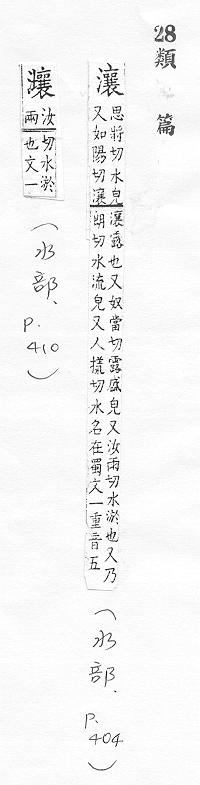 28 類篇
瀼
思將切水皃
又如陽切瀼
瀼露也又奴當切露盛皃又汝兩切水淤也又乃
朗切水流皃又人㨾切水名在蜀文一重音五
(水部、P.404)
瀼
汝
兩
切水淤
也文一
(水部、P.410)